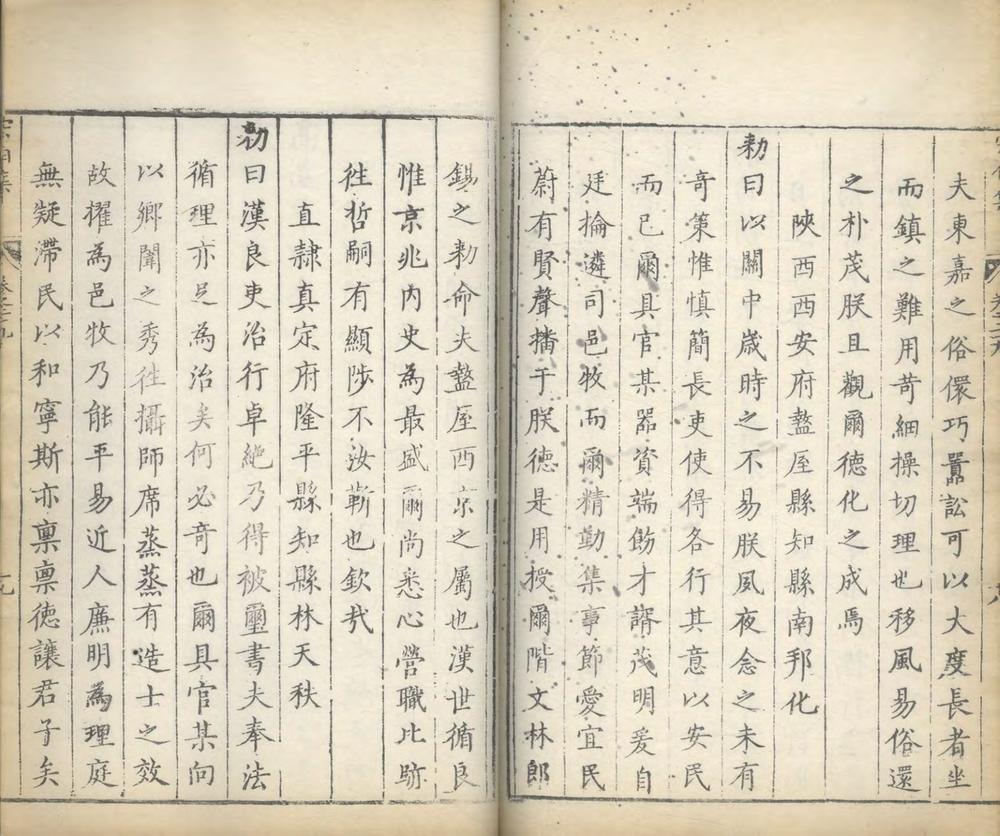 夫東嘉之俗儇巧囂訟可以大度長者坐
而鎮之難用苛細操切理也移風易俗還
之朴茂朕且觀爾德化之成焉
陝西西安府盩厔縣知縣南邦化
勑曰以關中歲時之不易朕夙夜念之未有
奇策惟慎簡長吏使得各行其意以安民
而已爾具官某器資端飭才諝茂明爰自
廷掄遴司邑牧而爾精勤集事節愛宜民
蔚有賢聲播于朕德是用授爾階文林郎
錫之勑命夫盩厔西京之屬也漢世循良
惟京兆內史為最盛爾尚悉心營職比跡
徃哲嗣有顯陟不汝蘄也欽㢤
直隸真定府隆平縣知縣林天秩
勑曰漢良吏治行卓絕乃得被璽書夫奉法
循理亦足為治矣何必奇也爾具官某向
以鄉闈之秀徃攝師席蒸蒸有造士之效
故擢為邑牧乃能平易近人廉明為理庭
無疑滯民以和寧斯亦稟稟德讓君子矣
卷之九